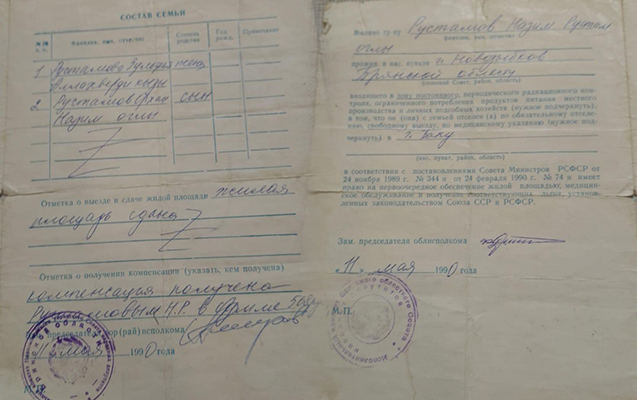 СОСТАВ СЕМЬИ
№№ Фамилия, имя, отчество Степень родства Год рожд. Примечание
1 Рустамова жена
Аллахверди кызы
2 Рустамов сын
Назим оглы
Отметка о выезде и сдаче жилой площади жиловая
площадь сдана
Отметка о получении компенсации (указать, кем получена)
компенсация получена
Рустамовым Н.Р. в
председатель гор(рай)исполкома
11 мая 1990 года
М.П.
Выдано гр-ну Рустамов Назим Рустам
оглы
(фамилия, имя, отчество)
прожив. в нас. пункте г. Новозыбков
Брянской области
входящего в зону постоянного, периодического радиационного конт-
роля, ограниченного потребления продуктов питания местного
производства и личных подсобных хозяйств (нужное подчеркнуть),
в том, что он (она) с семьей отселен(а) по обязательному отселе-
нию, свободному выезду, по медицинскому указанию (нужное под-
черкнуть) в г. Баку
(нас. пункт, район, область)
и соответствии с постановлениями Совета Министров РСФСР от
24 ноября 1989 г. № 344 и от 24 февраля 1990 г. № 74 и имеет
право на первоочередное обеспечение жилой площадью, медицин-
ское обслуживание и получение льгот, установ-
ленных законодательством Союза ССР и РСФСР.
Зам. председателя облисполкома
11 мая 1990 года
М.П.